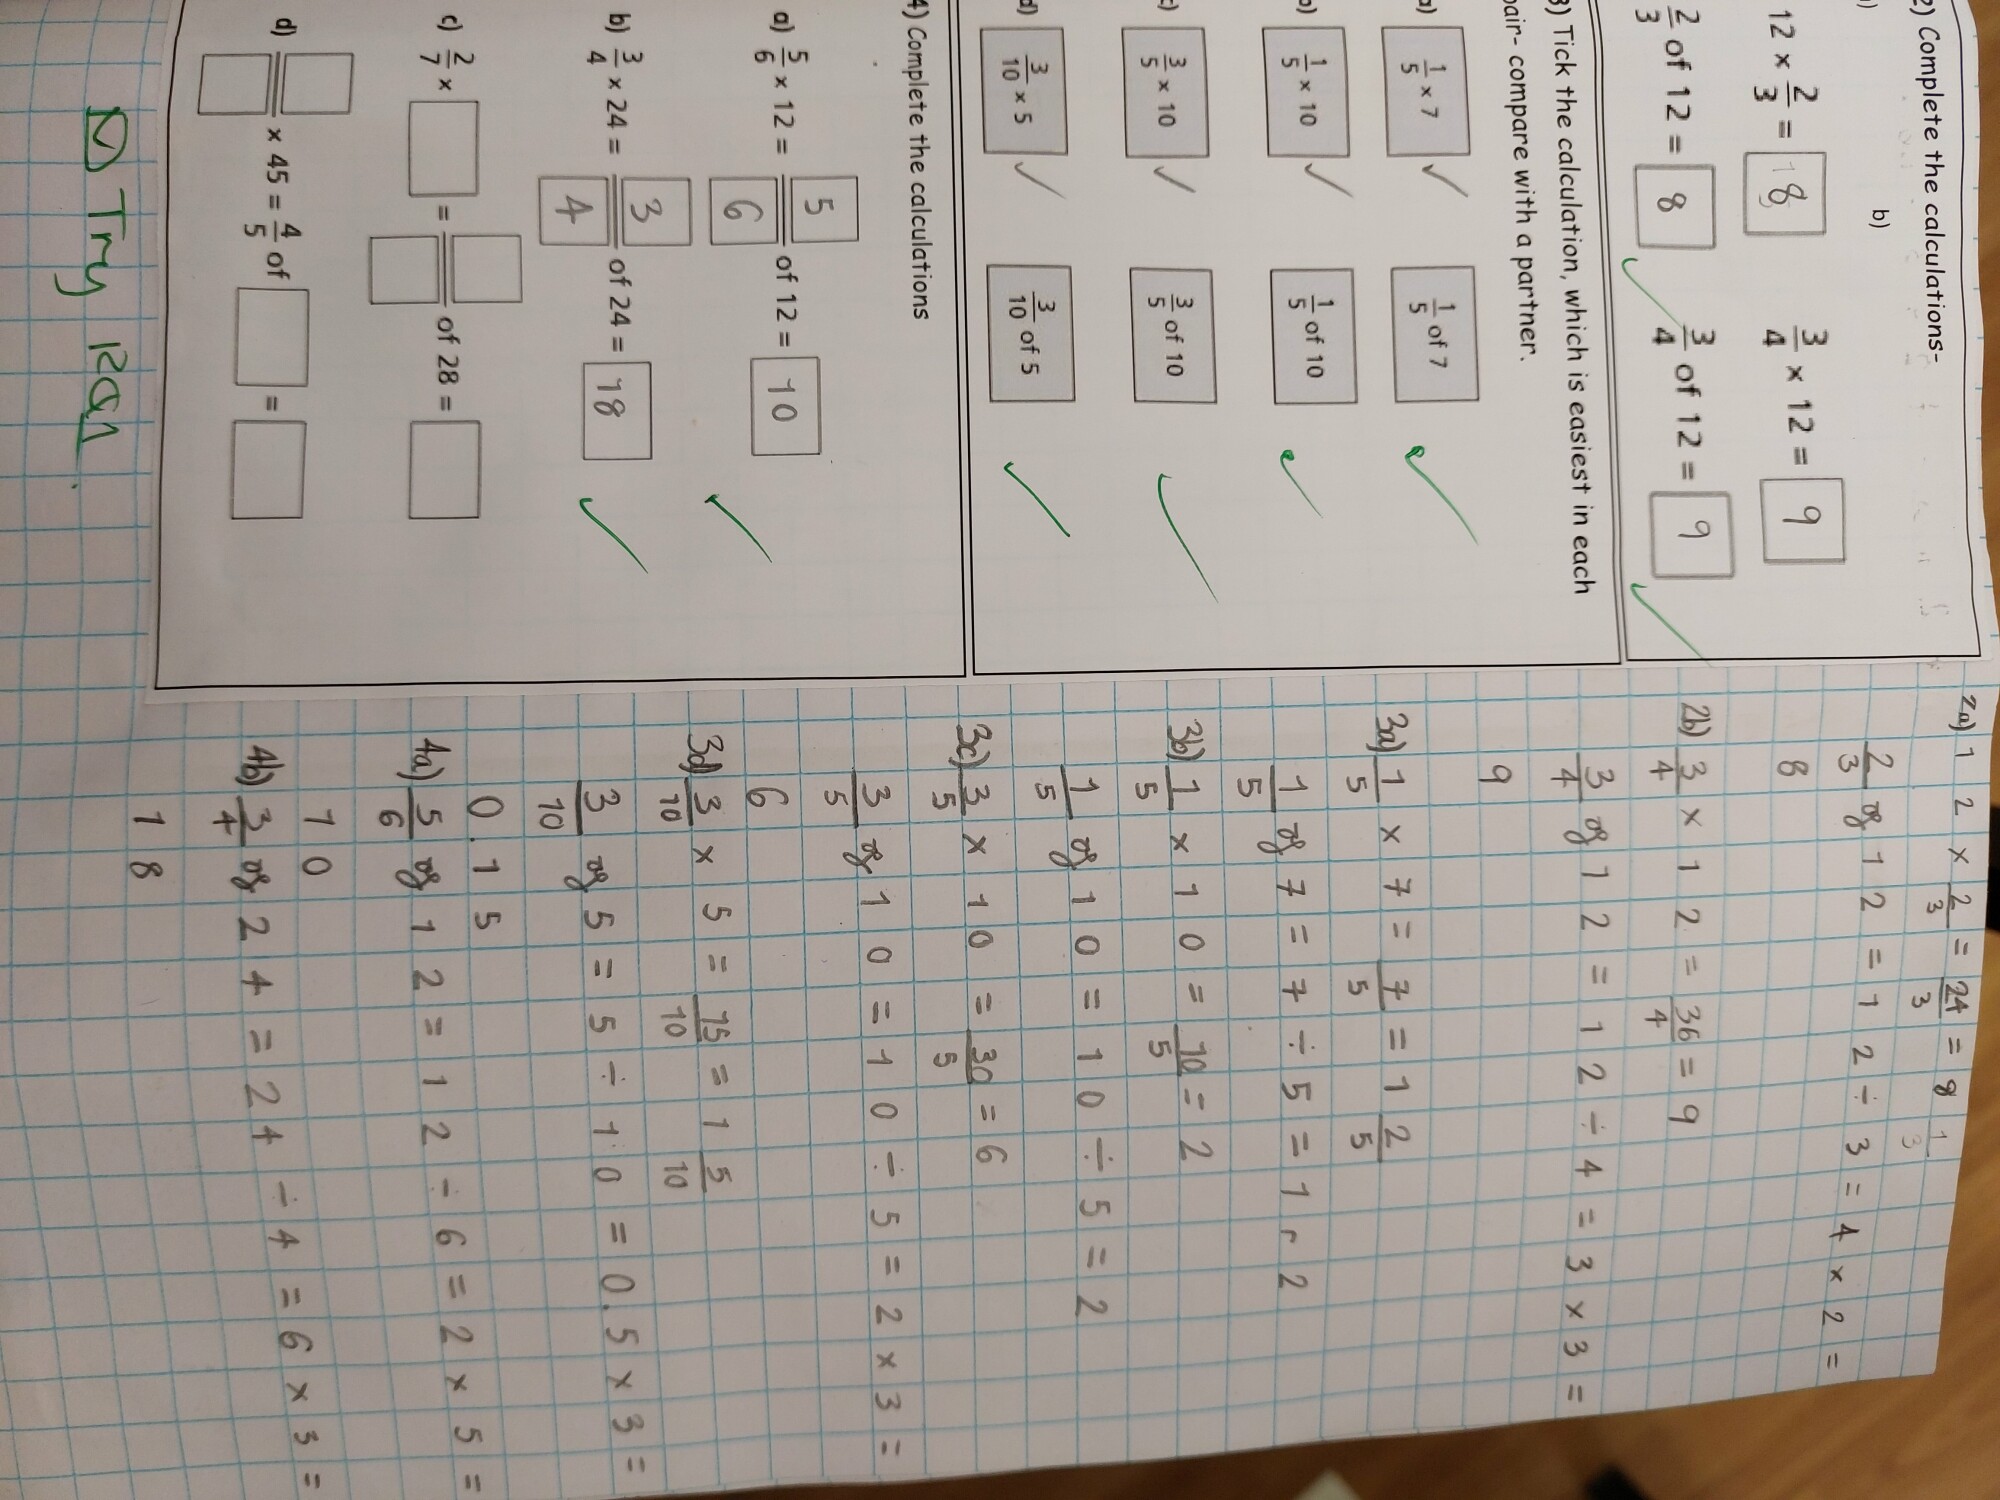 2) Complete the calculations-
b)
12 × 2/3 = 8
3/4 × 12 = 9
2/3 of 12 = 8
3/4 of 12 = 9
3) Tick the calculation, which is easiest in each
pair- compare with a partner.
a) 1/5 × 7 ✓ 1/5 of 7
b) 1/5 × 10 ✓ 1/5 of 10
c) 3/5 × 10 ✓ 3/5 of 10
d) 3/10 × 5 ✓ 3/10 of 5
4) Complete the calculations
a) 5/6 × 12 = 5/6 of 12 = 10
b) 3/4 × 24 = 3/4 of 24 = 18
c) 2/7 × = of 28 =
d) × 45 = 4/5 of =
Try
2a) 12 × 2/3 = 24/3 = 8
2/3 of 12 = 12 ÷ 3 = 4 × 2 =
8
2b) 3/4 × 12 = 36/4 = 9
3/4 of 12 = 12 ÷ 4 = 3 × 3 =
9
3a) 1/5 × 7 = 7/5 = 1 2/5
1/5 of 7 = 7 ÷ 5 = 1 r 2
3b) 1/5 × 10 = 10/5 = 2
1/5 of 10 = 10 ÷ 5 = 2
3c) 3/5 × 10 = 30/5 = 6
3/5 of 10 = 10 ÷ 5 = 2 × 3 =
6
3d) 3/10 × 5 = 15/10 = 1 5/10
3/10 of 5 = 5 ÷ 10 = 0.5 × 3 =
0.15
4a) 5/6 of 12 = 12 ÷ 6 = 2 × 5 =
10
4b) 3/4 of 24 = 24 ÷ 4 = 6 × 3 =
18